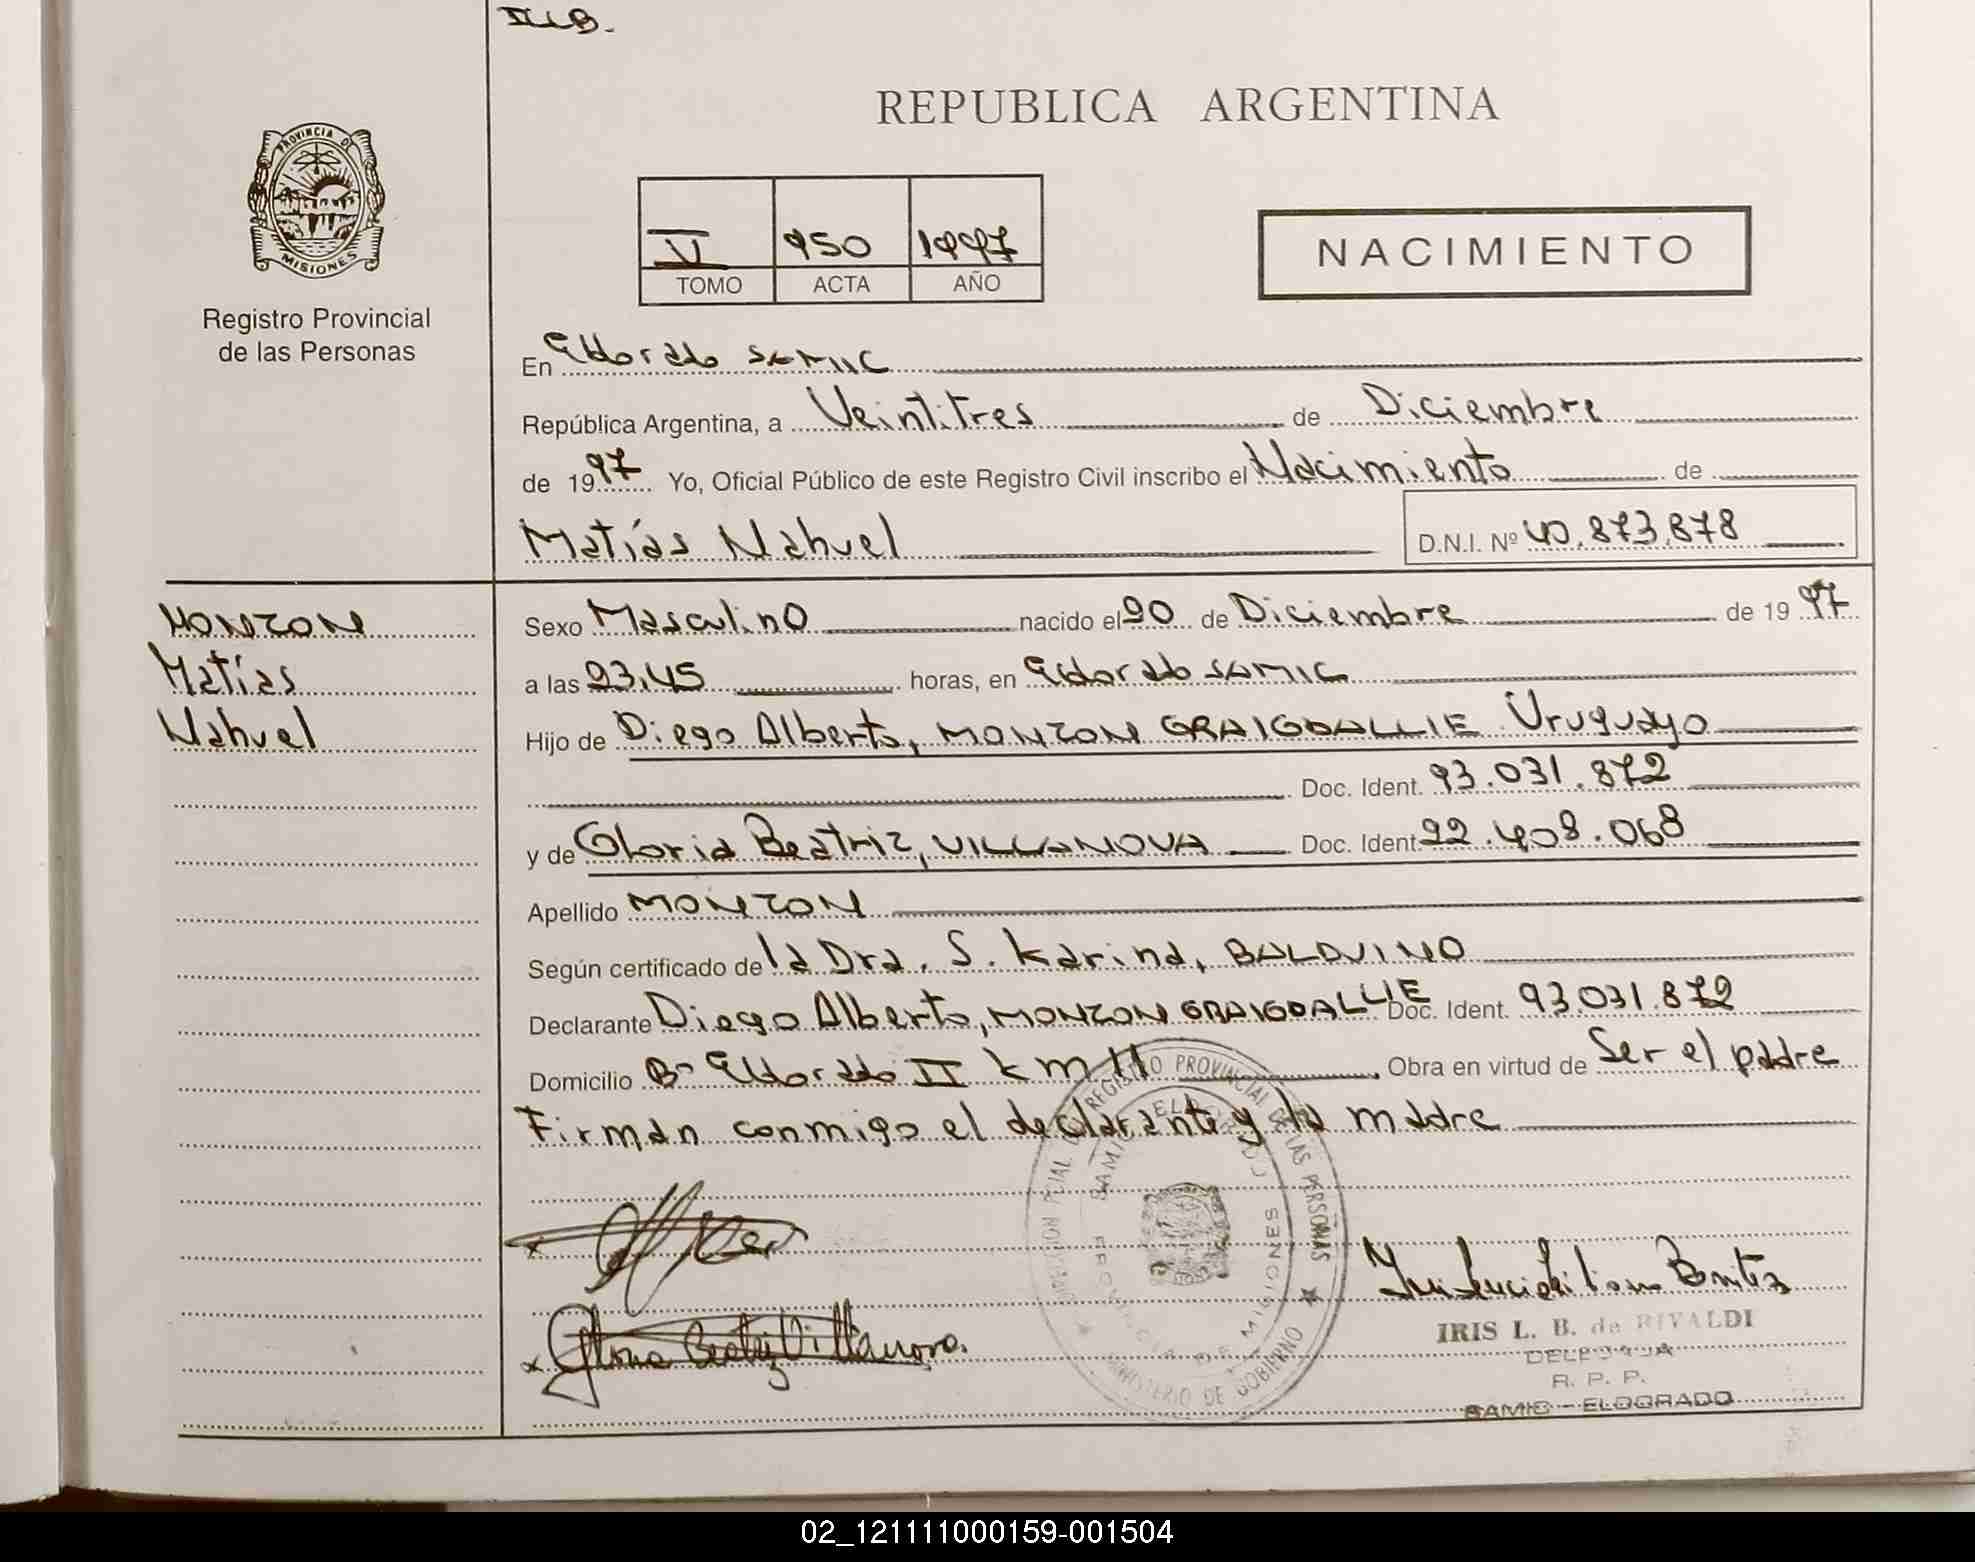 REPUBLICA ARGENTINA
PROVINCIA DE
MISIONES
Registro Provincial
de las Personas
V 950 1997
TOMO ACTA AÑO
NACIMIENTO
En Eldorado SAMIC
República Argentina, a Veintitres de Diciembre
de 1997 Yo, Oficial Público de este Registro Civil inscribo el Nacimiento de
Matías Nahuel D.N.I. Nº 40.873.878
MONZON
Matías
Nahuel
Sexo Masculino nacido el 20 de Diciembre de 1997
a las 23,45 horas, en Eldorado SAMIC
Hijo de Diego Alberto, MONZON GRAIGDALLIE Uruguayo
Doc. Ident. 93.031.872
y de Gloria Beatriz, VILLANOVA Doc. Ident. 22.408.068
Apellido MONZON
Según certificado de la Dra. S. Karina, BALDUINO
Declarante Diego Alberto, MONZON GRAIGDALLIE Doc. Ident. 93.031.872
Domicilio Bº Eldorado II km 11 Obra en virtud de Ser el padre
Firman conmigo el declarante y la madre
REGISTRO PROVINCIAL DE LAS PERSONAS
MINISTERIO DE GOBIERNO
PROVINCIA DE MISIONES
x
x Gloria Beatriz Villanova.
Benitez
IRIS L. B. de RIVALDI
DELEGADA
R. P. P.
SAMIC - ELDORADO
02_121111000159-001504